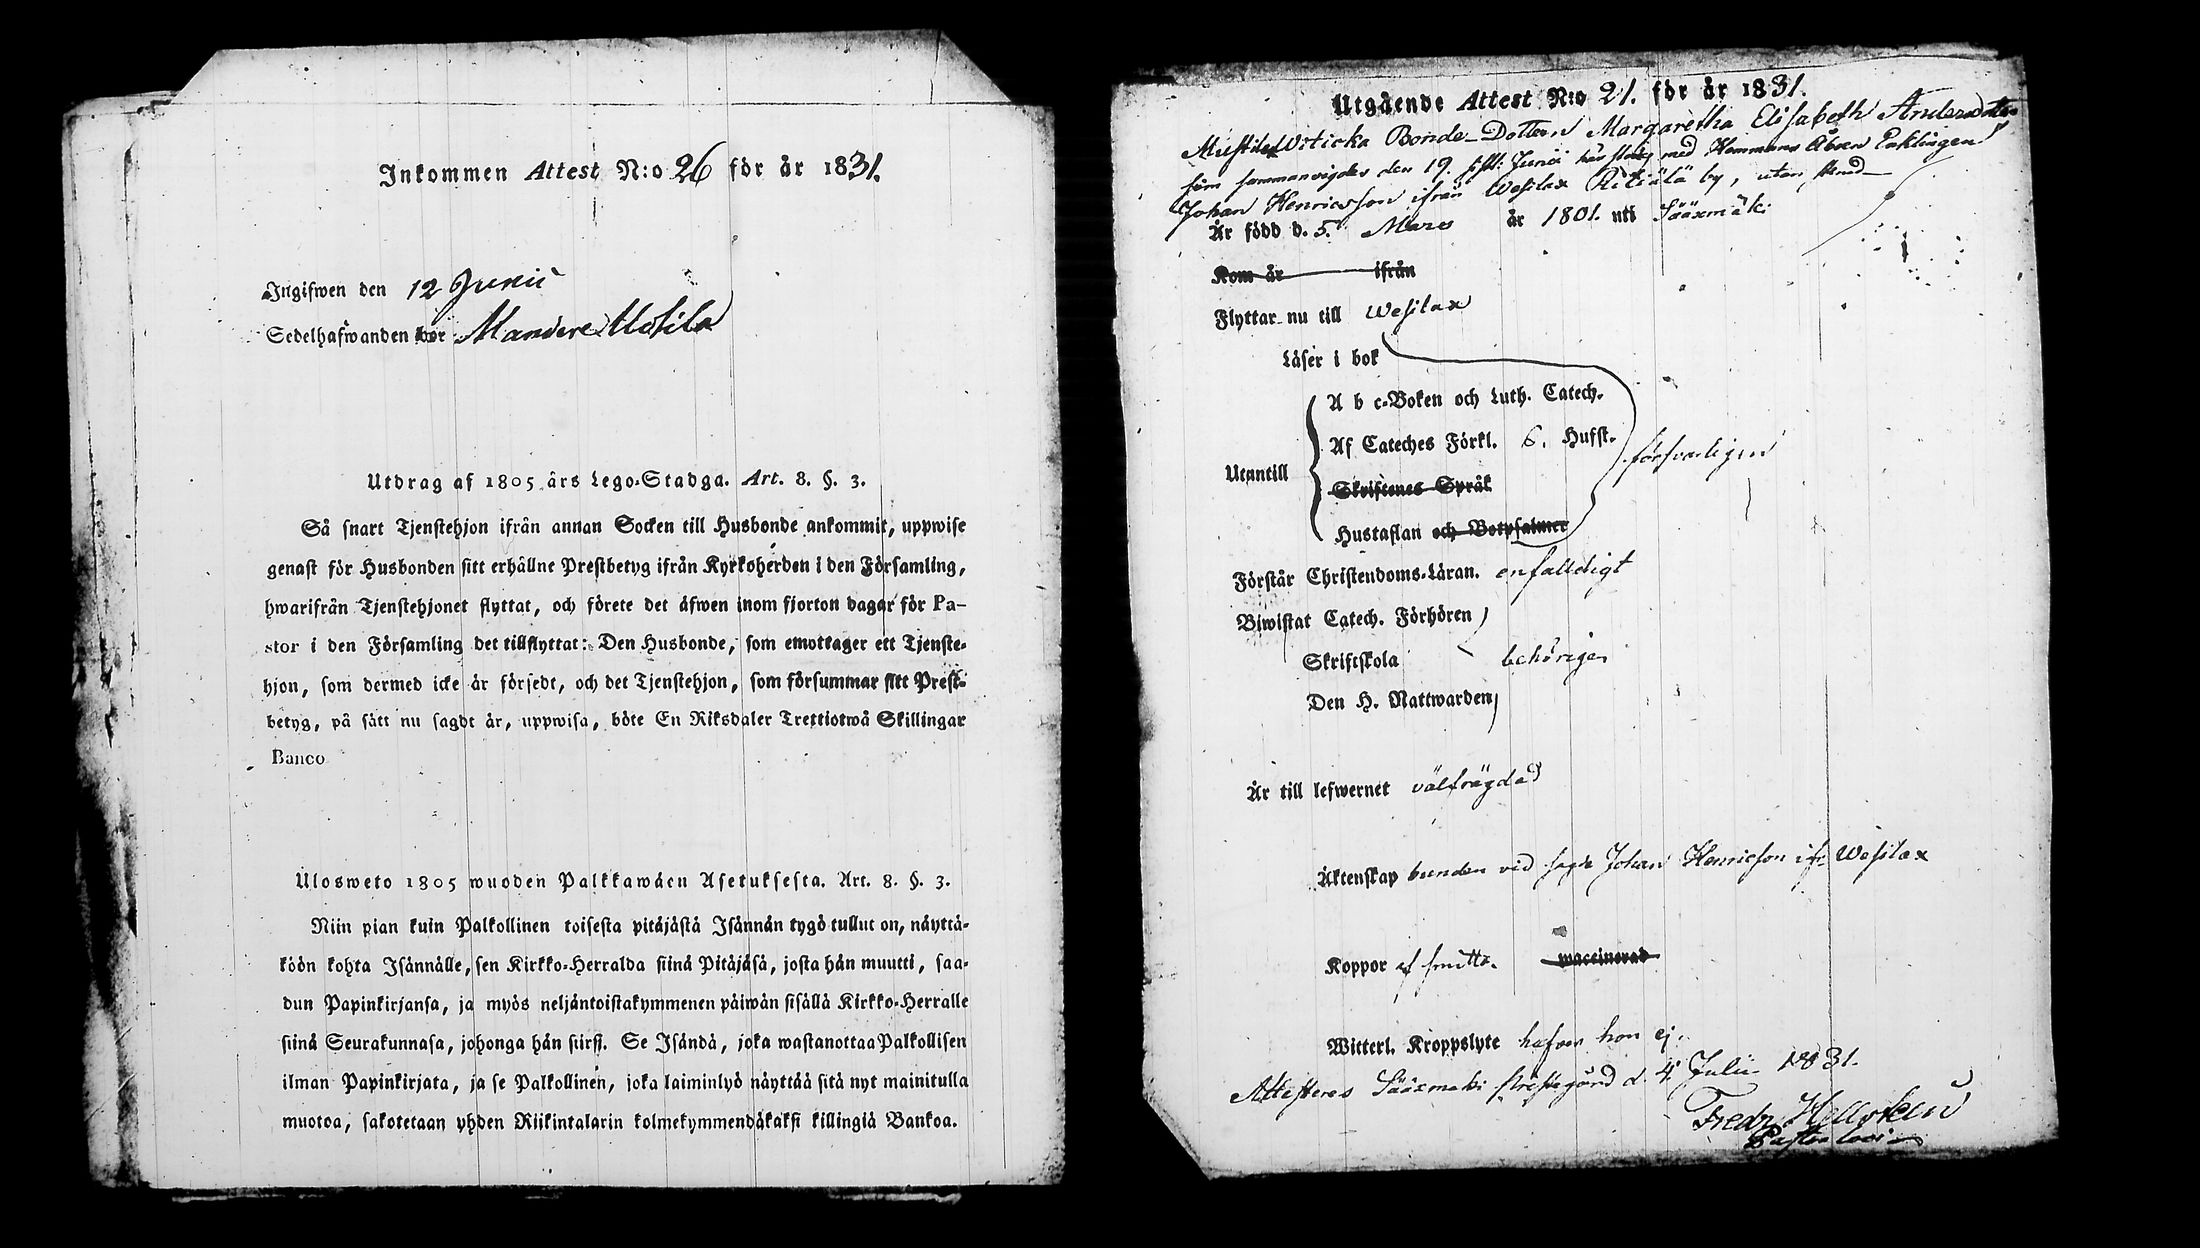 Inkommen Attest N:o 26 för år 1831.
Ingifwen den 12 Junii
Sedelhafwanden bor Mandere Uotila
Utdrag af 1805 års Lego-Stadga. Art. 8. §. 3.
Så snart Tjenstehjon ifrån annan Socken till Husbonde ankommit, uppwise
genast för Husbonden sitt erhållne Prestbetyg ifrån Kyrkoherden i den Församling,
hwarifrån Tjenstehjonet flyttat, och förete det äfwen inom fjorton dagar för Pa-
stor i den Församling det tillflyttat: Den Husbonde, som emottager ett Tjenste-
hjon, som dermed icke är försedt, och det Tjenstehjon, som försummar sitt Prest-
betyg, på sätt nu sagdt är, uppwisa, böte En Riksdaler Trettiotwå Skillingar
Banco
Ulosweto 1805 wuoden Palkkawäen Asetuksesta. Art. 8. §. 3.
Niin pian kuin Palkollinen toisesta pitäjästä Isännän tygö tullut on, näyttä-
köön kohta Isännälle, sen Kirkko-Herralda siinä Pitäjäsä, josta hän muutti, saa-
dun Papinkirjansa, ja myös neljäntoistakymmenen päiwän sisällä Kirkko-Herralle
siinä Seurakunnasa, johonga hän siirsi. Se Isändä, joka wastanottaa Palkollisen
ilman Papinkirjata, ja se Palkollinen, joka laiminlyö näyttää sitä nyt mainitulla
muotoa, sakotetaan yhden Riikintalarin kolmekymmendäkaksi killingiä Bankoa.
Utgående Attest N:o 21. för år 1831.
Bonde-Dottern Margaretha Elisabeth Andersdotter
som sammanvigdes den 19. sistl. Junii härstädes med Hemmans Åboen Enklingen
Johan Henricsson ifrån Wesilax by, utan
Är född d. 5. Mars år 1801. uti Sääxmäki
Kom år ifrån
Flyttar nu till Wesilax
Läser i bok
A b c-Boken och Luth. Catech.
Af Cateches Förkl. 6. Hufst.
Utantill försvarligen
Skriftenes Språk
Hustaflan och Botpsalmer
Förstår Christendoms-Läran. enfalldigt
Biwistat Catech. Förhören
Skriftskola behörigen
Den H. Nattwarden
Är till lefwernet välfrägdad
Äktenskap bunden vid sagde Johan Henricson ifr. Wesilax
Koppor af smitta. waccinerad
Witterl. Kroppslyte hafver hon ej.
Attesteras Sääxmäki prestegård d. 4 Julii 1831.
Fredr Hellsten